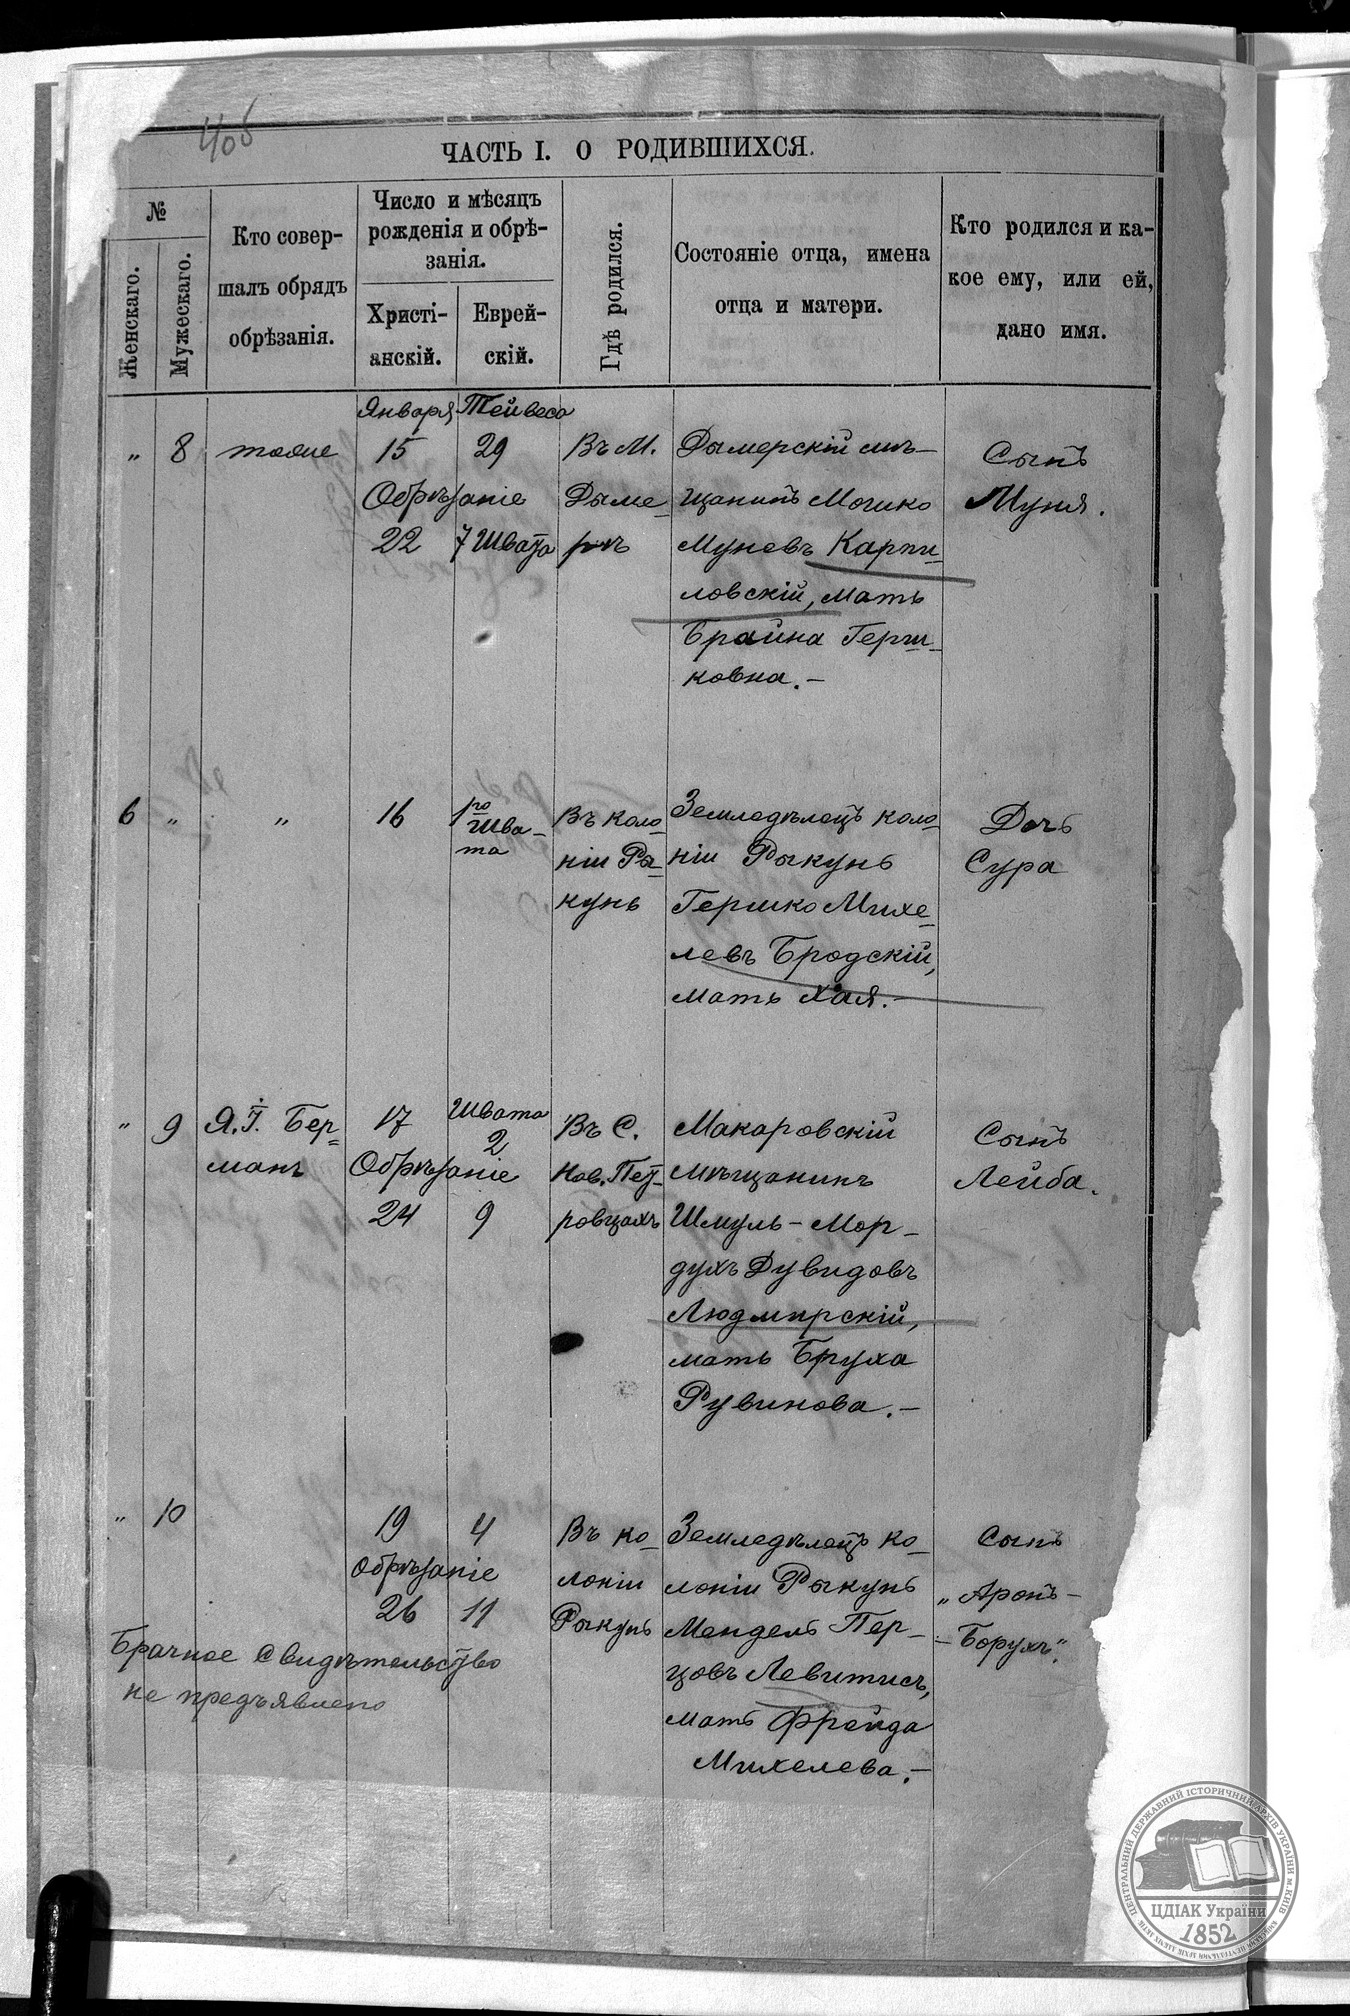 40б
ЧАСТЬ I. О РОДИВШИХСЯ.
№
Женскаго.
Мужескаго.
Кто совер-
шалъ обрядъ
обрѣзанія.
Число и мѣсяцъ
рожденія и обрѣ-
занія.
Христі-
анскій.
Еврей-
скій.
Гдѣ родился.
Состояніе отца, имена
отца и матери.
Кто родился и ка-
кое ему, или ей,
дано имя.
Января Тейвеса
„ 8 тоже 15 29
Обрѣзаніе
22 7 Швата
Въ М.
Дыме-
рѣ
Дымерскій мѣ-
щанинъ Мошко
Муневъ Карпи-
ловскій, мать
Брайна Герш-
ковна.-
Сынъ
Муня.
6 „ „ 16 1го
Шва-
та
Въ коло-
ніи Ры-
кунь
Земледѣлецъ коло-
ніи Рыкунь
Гершко Михе-
левъ Бродскій,
мать Хая.-
Дочь
Сура
„ 9 Я. І. Бер-
манъ
17 Швата
2
Обрѣзаніе
24 9
Въ С.
Нов. Пет-
ровцахъ
Макаровскій
мѣщанинъ
Шмуль-Мор-
духъ Дувидовъ
Людмирскій,
мать Бруха
Рувинова.-
Сынъ
Лейба.
„ 10 19 4
Обрѣзаніе
26 11
Въ ко-
лоніи
Рыкунь
Земледѣлецъ ко-
лоніи Рыкунь
Мендель Пер-
цовъ Левитисъ,
мать Фрейда
Михелева.-
Сынъ
„Аронъ-
-Борухъ“.
Брачное свидѣтельство
не предъявлено
ЦЕНТРАЛЬНИЙ ДЕРЖАВНИЙ ІСТОРИЧНИЙ АРХІВ УКРАЇНИ М.КИЇВ
ЦДІАК України
1852